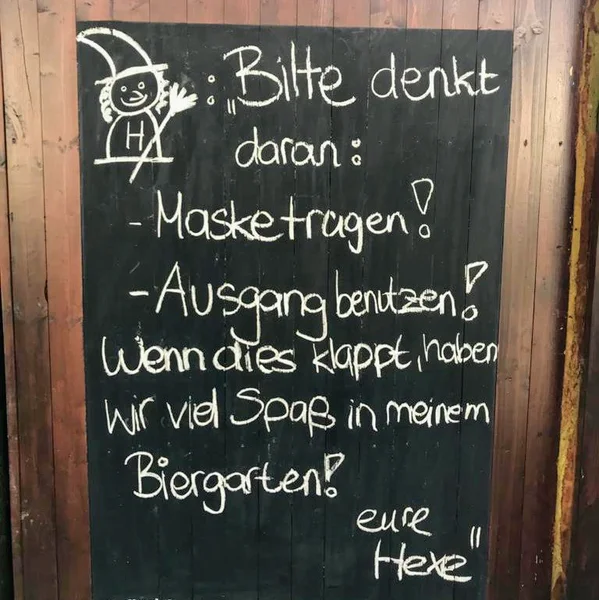 H : „Bitte denkt
daran:
- Maske tragen!
- Ausgang benutzen!
Wenn dies klappt, haben
wir viel Spaß in meinem
Biergarten!
eure
Hexe"